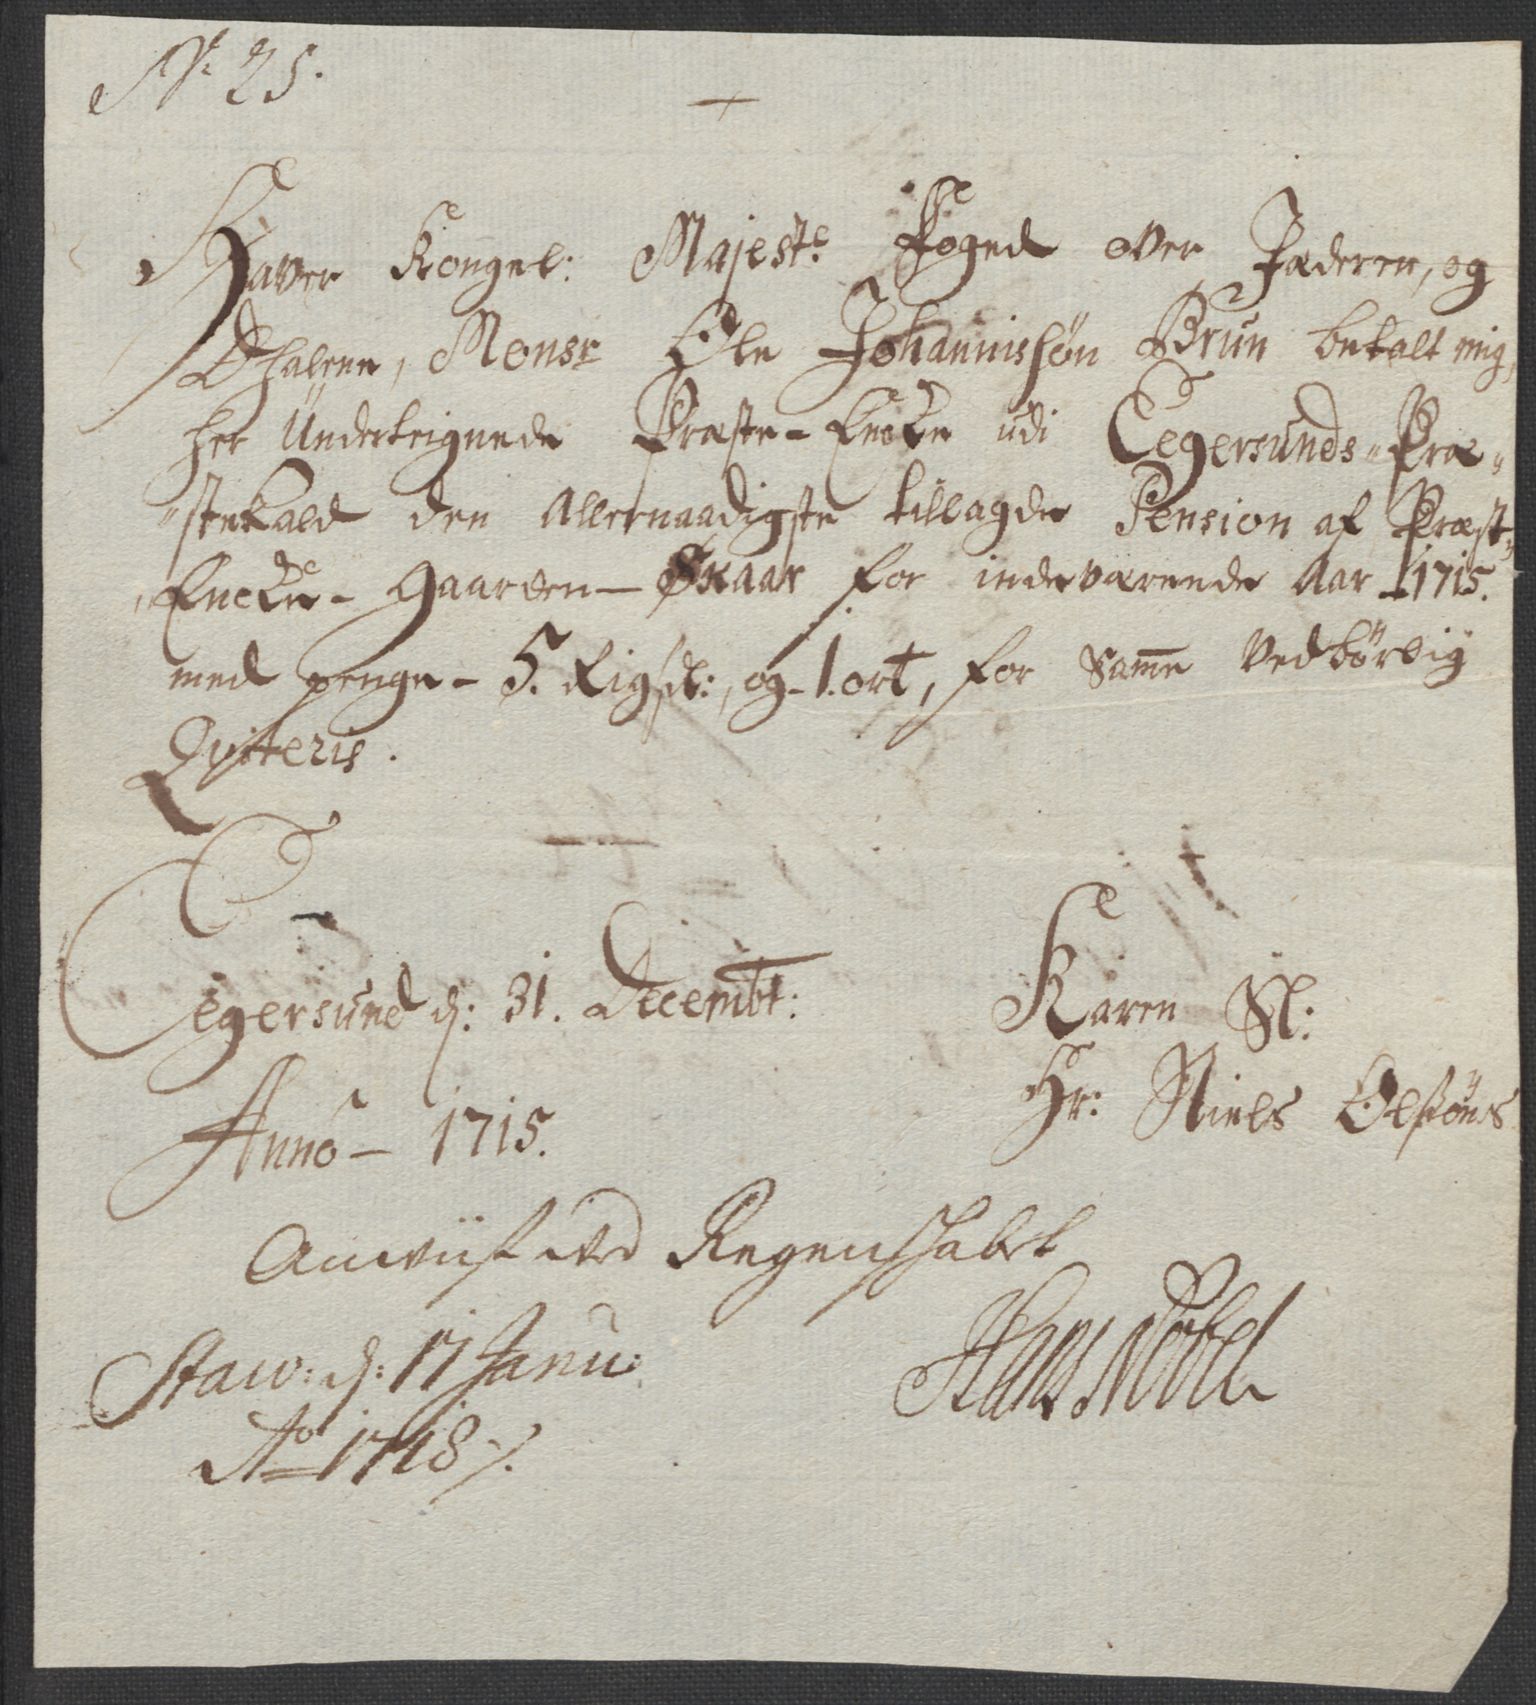 No 25.
Haver Kongel: Mayeste Foged over Jæderen, og
Dhalerne, Monsr Ole Johannissøn Brun betalt mig,
her Underteignede Præste-Encke udi Eegersunds-Præ-
stekald den allernaadigste tillagde Pension af Præst-
Encke-gaarden-Skaar for indeværende Aar 1715.
med penge-5. Rigsdl:, og-1.ort, for Samme Vedbørlig
Qviteris.
Eegersund d: 31. Decembr:
Anno-1715.
Karen Sl:
Hr: Niels Olssøns
Anviist ved Regenskabet
Staw: d: 17 Janu:
Ao 1718
Hans Nobel